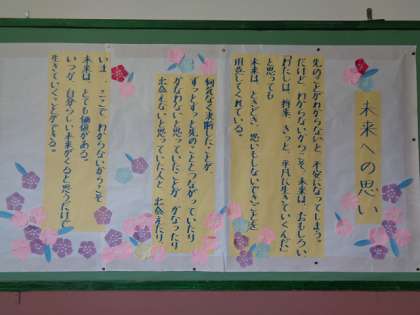 未来への思い
先のことがわからないと 不安になってしまう。
だけど、わからないからこそ、未来は、おもしろい
「わたしは、将来、きっと、平凡に生きていくんだ」
と思っても
未来は、ときどき、思いもしないできごとを
用意してくれている。
何気なく決断したことが
ずっとずっと先のこととつながっていたり
かなわないと思っていたことが かなったり
出会えないと思っていた人と 出会えたり
いま、ここで わからないからこそ
未来は、とても価値がある。
いつか、自分らしい未来がくると思うだけで
生きていくことができる。